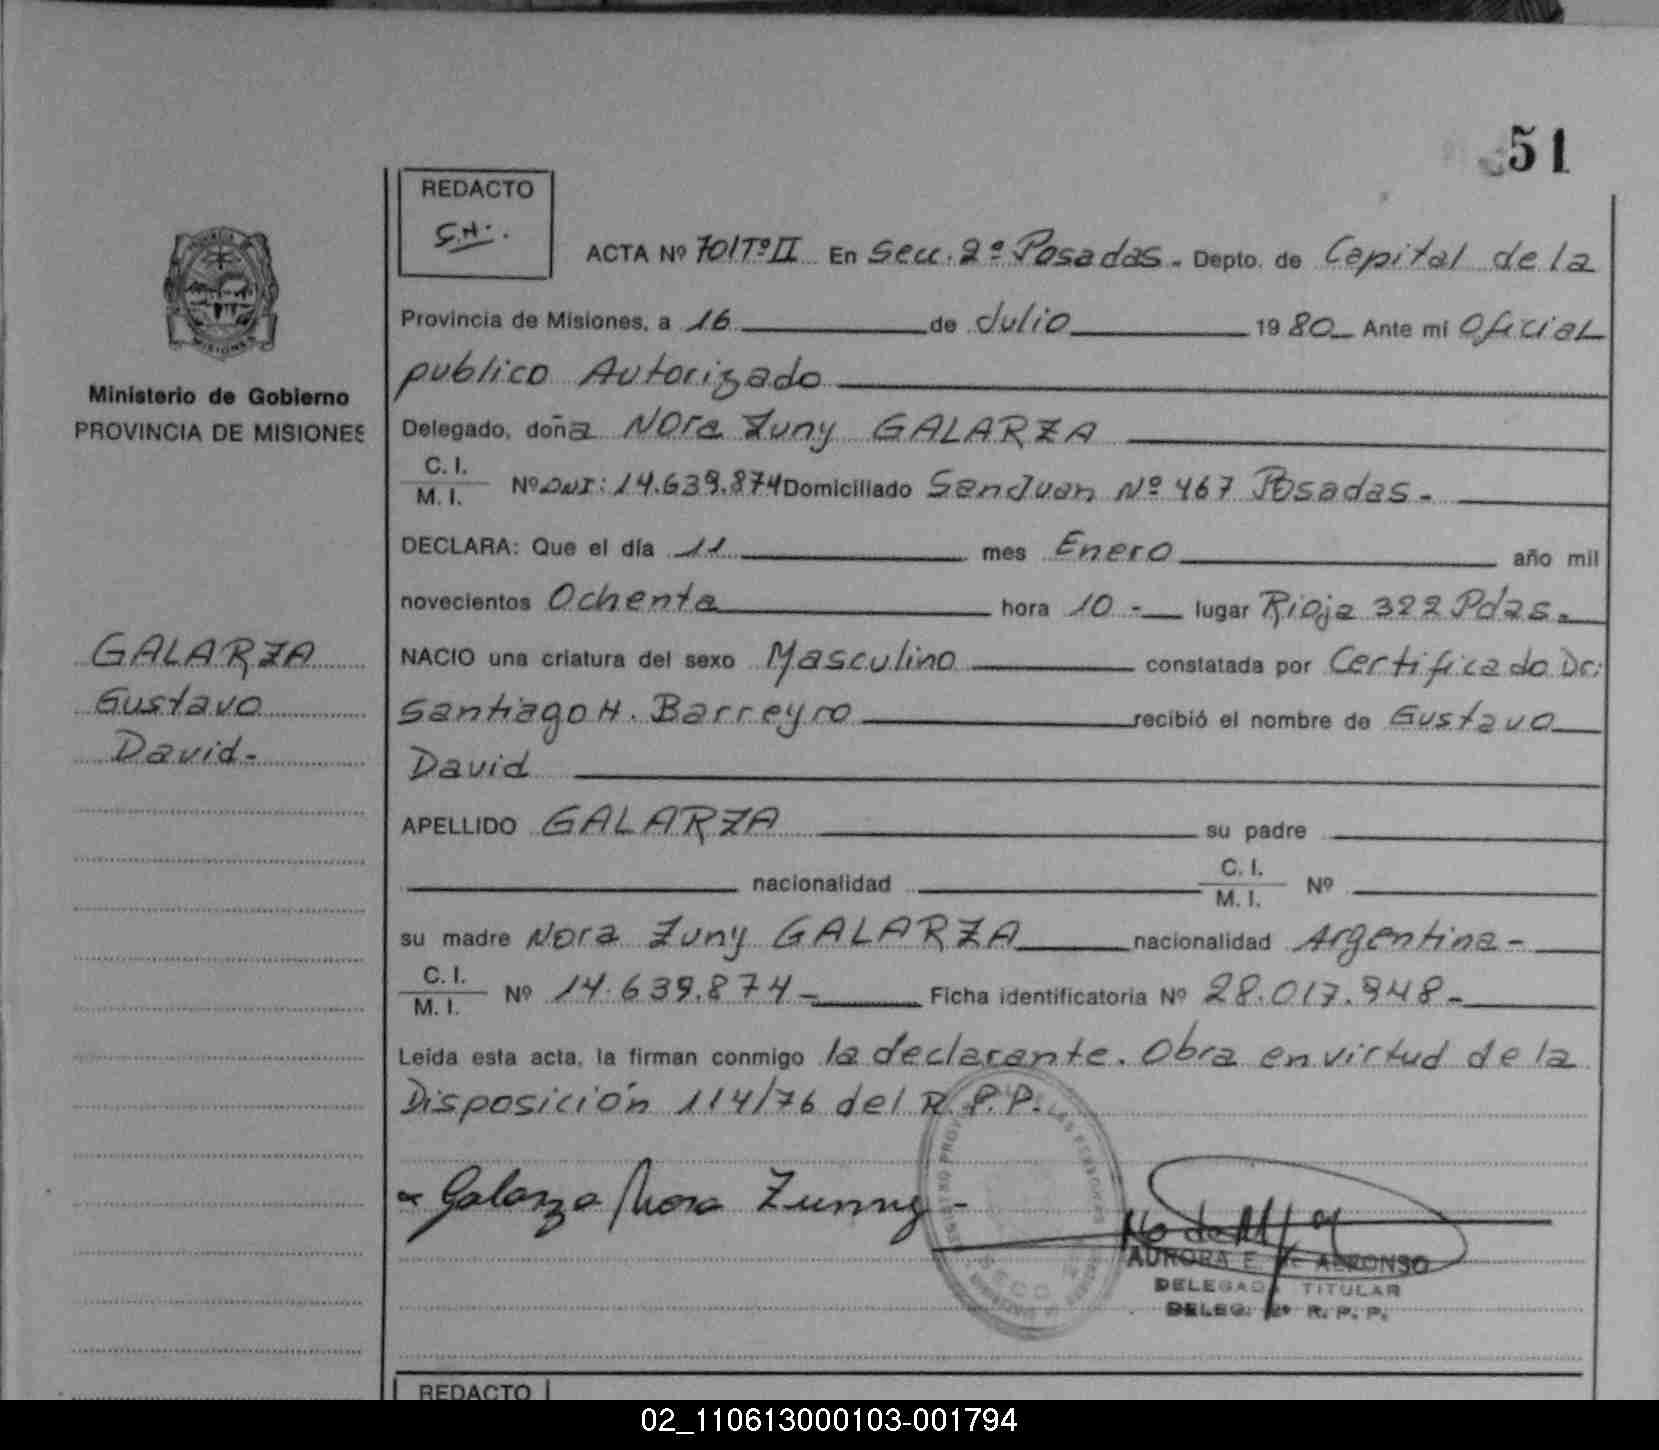 51
REDACTO
S.N.
ACTA Nº 701Tº II En Secc. 2ª Posadas. Depto. de Capital de la
Provincia de Misiones, a 16 de Julio 1980 Ante mi Oficial
publico Autorizado
Ministerio de Gobierno
PROVINCIA DE MISIONES
Delegado, doña Nora Zuny GALARZA
C. I.
M. I. Nº DNI: 14.639.874 Domiciliado San Juan Nº 467 Posadas.
DECLARA: Que el día 11 mes Enero año mil
novecientos Ochenta hora 10 - lugar Rioja 322 Pdas.
GALARZA
Gustavo
David-
NACIO una criatura del sexo Masculino constatada por Certificado Dr:
Santiago H. Barreyro recibió el nombre de Gustavo
David
APELLIDO GALARZA su padre
nacionalidad C. I.
M. I. Nº
su madre Nora Zuny GALARZA nacionalidad Argentina -
C. I.
M. I. Nº 14.639.874 - Ficha identificatoria Nº 28.017.948 -
Leída esta acta, la firman conmigo la declarante. Obra en virtud de la
Disposición 114/76 del R.P.P.
Galarza Nora Zunny -
AURORA E. DE ALFONSO
DELEGADA TITULAR
DELEG. 2ª R. P. P.
REDACTO
02_110613000103-001794